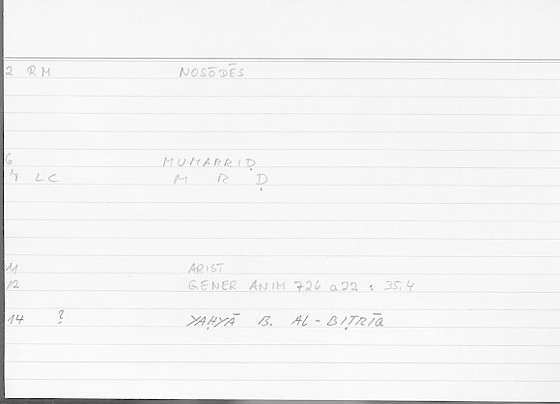 2 RM NOSŌDĒS
6 MUMARRIḌ
7 LC M R Ḍ
11 ARIST
12 GENER ANIM 726 a22 : 35.4
14 ? YAḤYĀ B. AL-BIṬRĪQ